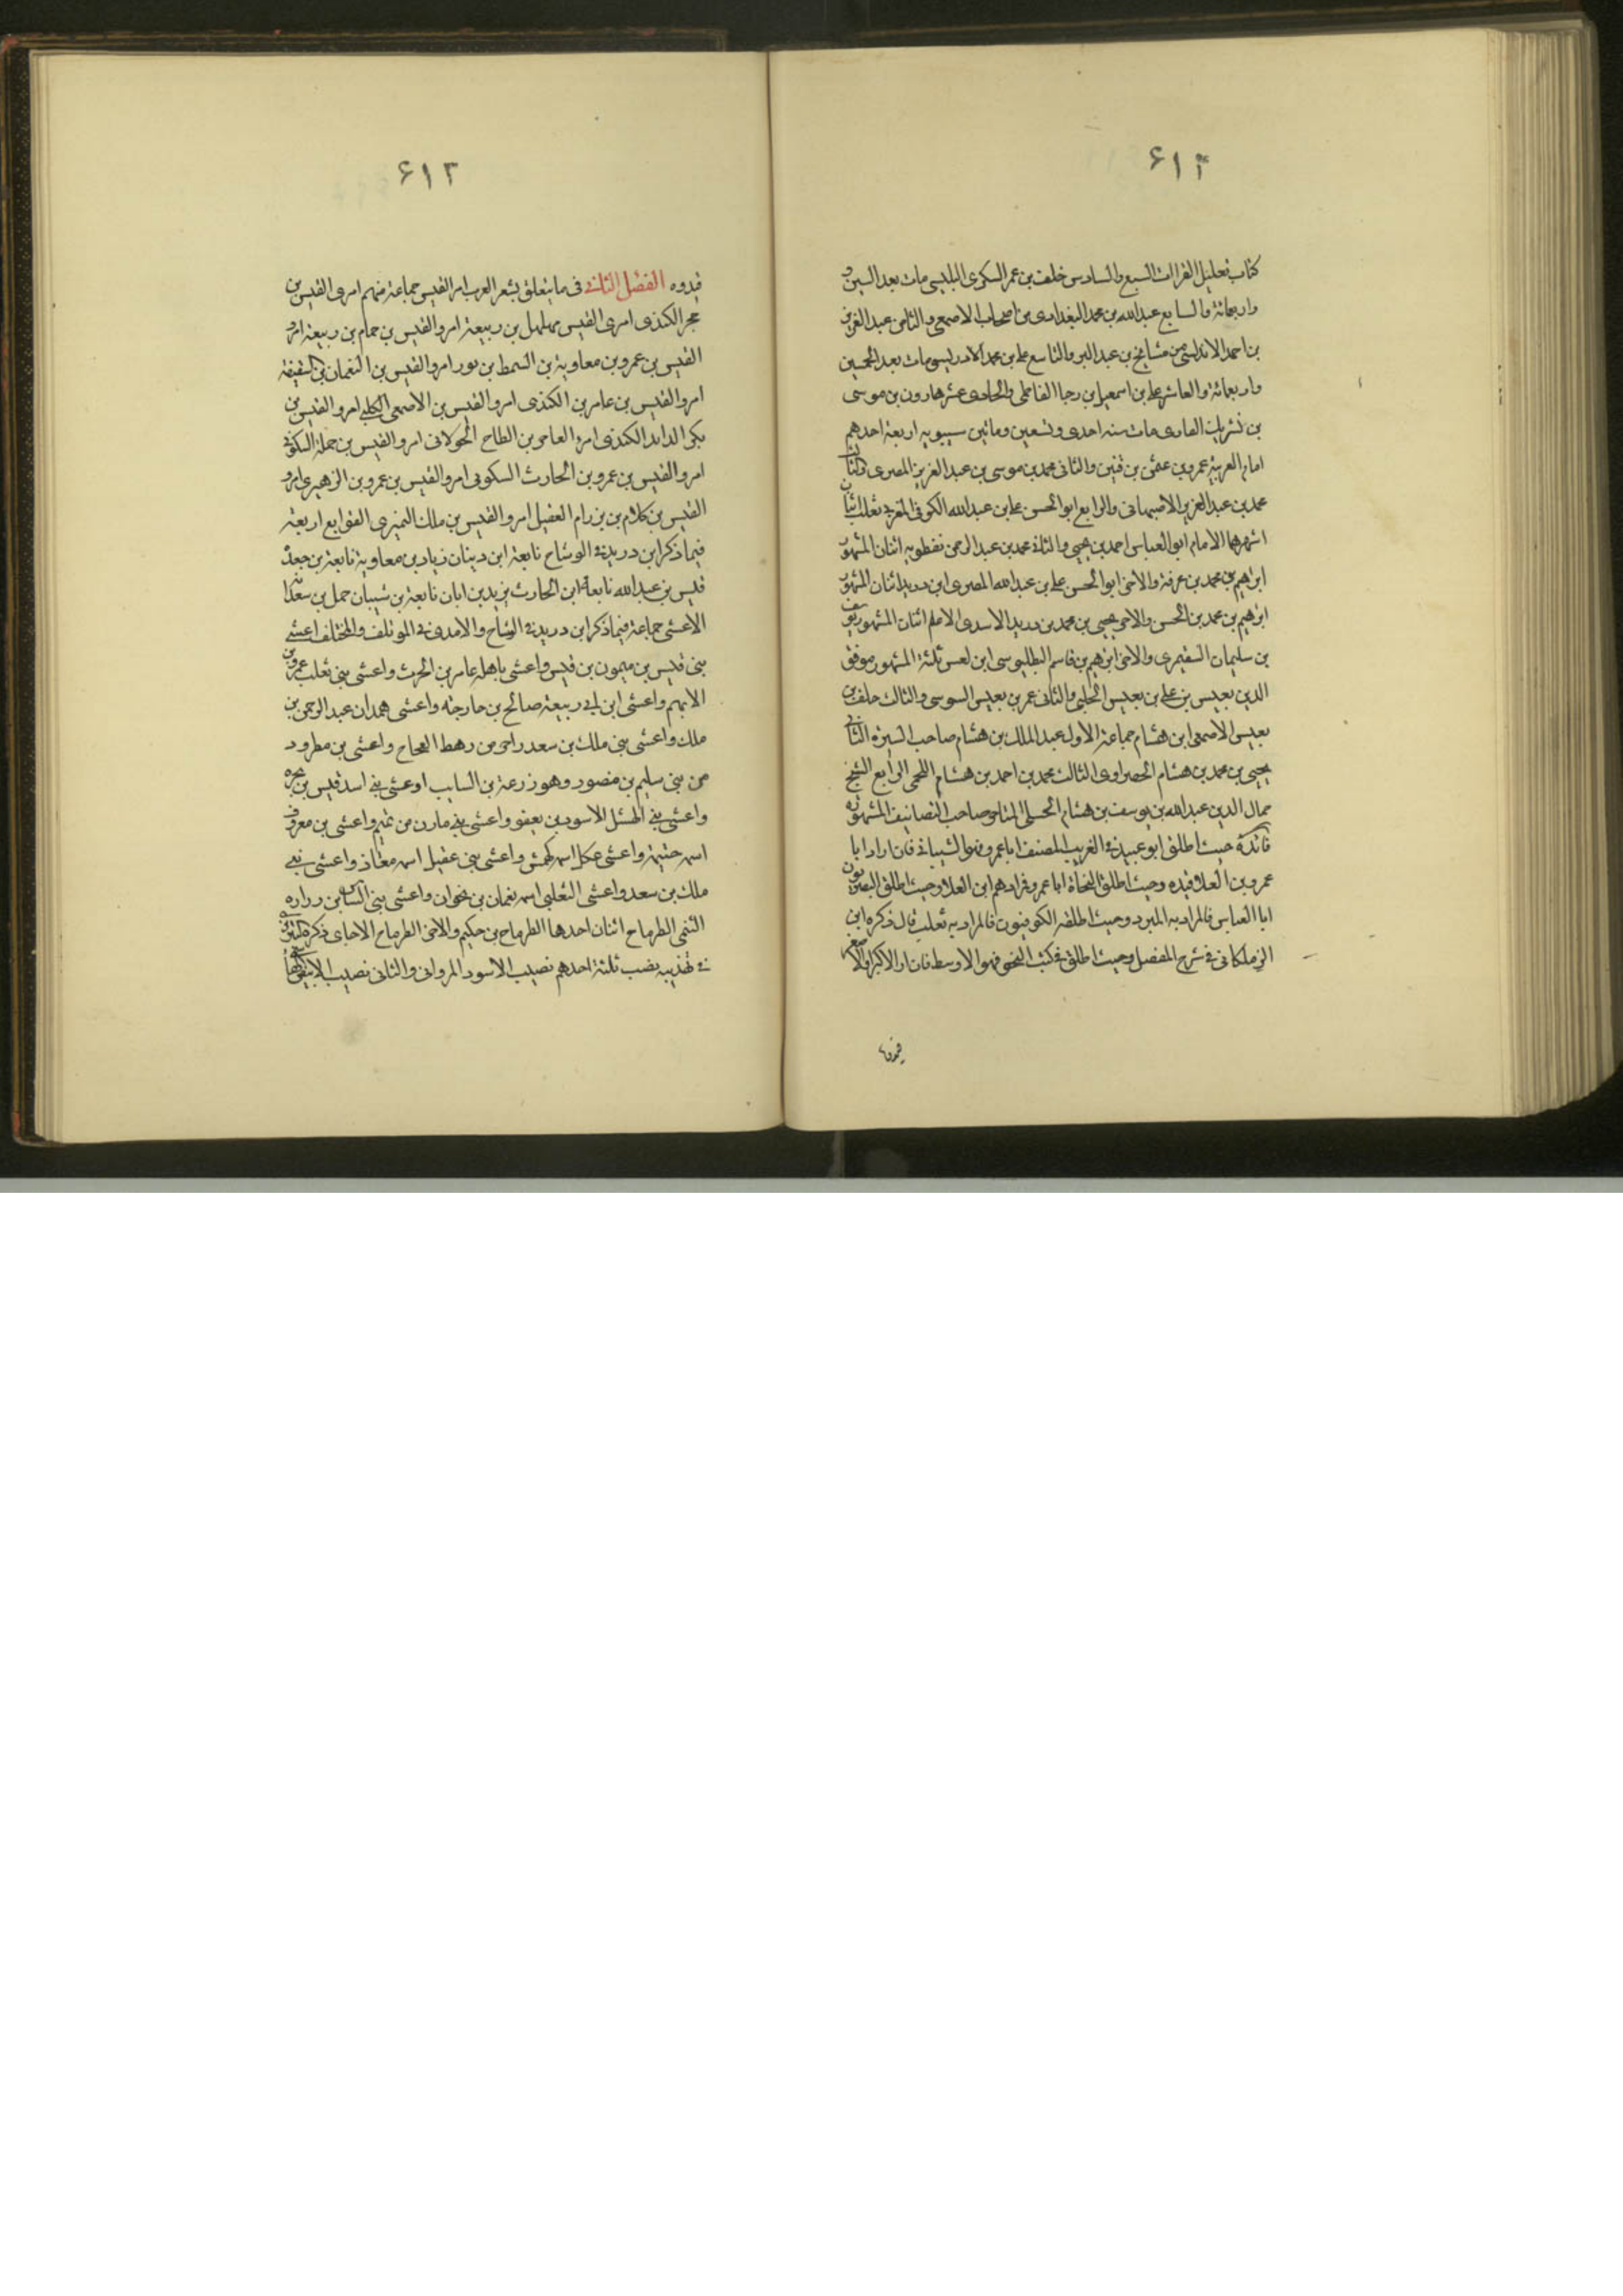 ٤١٢
كتاب تعليل القراات السبع والسادس خلف بن عمر السكرى البلبسى مات بعد السين
واربعمائة والسابع عبدالله بن محمد البغدادى من اصحاب الاصمعى والثامن عبد العزيز
بن احمد الاندلسى من مشايخ بن عبد البر والتاسع على بن محمد الادريسى مات بعد الخمسين
واربعمائة والعاشر على بن اسمعيل بن رجا الفاطمى والحادى عشر هارون بن موسى
بن شريك القارى مات سنه احدى وتسعين ومائين سيبويه اربعة احدهم
امام العربية عمرو بن عثمن بن قنبر والثانى محمد بن موسى بن عبد العزيز المصرى والثالث
محمد بن عبد العزيز الاصبهانى والرابع ابو الحسن على بن عبدالله الكوفى المغربى ثعلب اثنان
اشهرهما الامام ابو العباس احمد بن يحيى والثانى محمد بن عبد الرحمن نفطويه اثنان المشهور
ابراهيم بن محمد بن عرفة والاخر ابو الحسن على بن عبدالله المصرى ابن دريد اثنان المشهور
ابرهيم بن محمد بن الحسن والاخر يحيى بن محمد بن دريد الاسدى الاعلم اثنان المشهور يوسف
بن سليمان الشقيمرى والاخر ابرهيم بن قاسم البطليوسى ابن لعس ثلثة المشهور موفق
الدين يعيس بن على بن يعيس الحلبى والثانى عمر بن يعيس السوسى والثالث خلف بن
يعيس الاصمعى ابن هشام جماعة الاول عبد الملك بن هشام صاحب السيرة الثانى
يحيى بن محمد بن هشام الحصراوى الثالث محمد بن احمد بن هشام اللخمى الرابع الشيخ
جمال الدين عبدالله بن يوسف بن هشام الحسلى المتاخر صاحب التصانيف المشهوره
فائدة حيث اطلق ابو عبيد فى الغريب المصنف ابا عمرو فهو الشيبانى فان اراد ابا
عمرو بن العلا قيده وحيث اطلق النحاة ابا عمرو فمرادهم ابن العلا وحيث اطلق البصريون
ابا العباس فالمراد به المبرد وحيث اطلقه الكوفيون فالمراد به ثعلب قال ذكره ابن
الزملكانى فى شرح المفصل وحيث اطلق فى كتب النحو فهو الاوسط فان اراد الاكبر او الاصغر
٤١٣
قيدوه الفصل الثانى فى ما يتعلق بشعر العرب امر القيس جماعة منهم امرى القيس بن
حجر الكندى امرى القيس مهلهل بن ربيعة امرو القيس بن حمام بن ربيعة امرو
القيس بن عمرو بن معاوية بن السمط بن ثور امرو القيس بن النعمان بن الشقيقة
امرو القيس بن عامر بن الكندى امرو القيس بن الاصمعى الكلبى امرو القيس بن
بكر الدايد الكندى امرؤ العاصر بن الطاح الخولانى امرو القيس بن حملة السكونى
امرو القيس بن عمرو بن الحارث السكونى امرو القيس بن عمرو بن الزهيرى امرو
القيس بن كلام بن رزام العقيل امرو القيس بن ملك النميرى الفوابع اربعة
فيما ذكر ابن دريد فى الوشاح نابعة ابن دينان زياد بن معاوية نابعة بن جعدة
قيس بن عبدالله نابعة ابن الحارث يزيد بن ابان نابعة بن شيبان حمل بن سعدانه
الاعشى جماعة فيما ذكر ابن دريد فى الوشاح والامدى فى الموتلف والمختلف اعشى
بنى قيس بن ميمون بن قيس واعشى باهله عامر بن الحرث واعشى بنى تغلب عمرو بن
الايهم واعشى ابن ابى ربيعة صالح بن خارجه واعشى همدان عبد الرحمن بن
ملك واعشى بنى ملك بن سعد راجز من رهط العجاج واعشى بن مطرود
من بنى سليم بن منصور وهو زرعة بن السايب اوعشى بنى اسد قيس بن بجره
واعشى بنى الهشل الاسود بن يعفو واعشى بنى مازن من تميم واعشى بن معروف
اسمه خيثمة واعشى عكل اسمه كهمش واعشى بنى عقيل اسمه معاذ واعشى بنى
ملك بن سعد واعشى التعلبى اسمه نعمان بن نجوان واعشى بنى الساس بن رواره
التيمى الطرماح اثنان احدها الطرماح بن حكيم والاخر الطرماح الاجاى ذكره التبريزى
فى تهذيبه نصب ثلثة احدهم نصيب الاسود المروانى والثانى نصيب الابيض